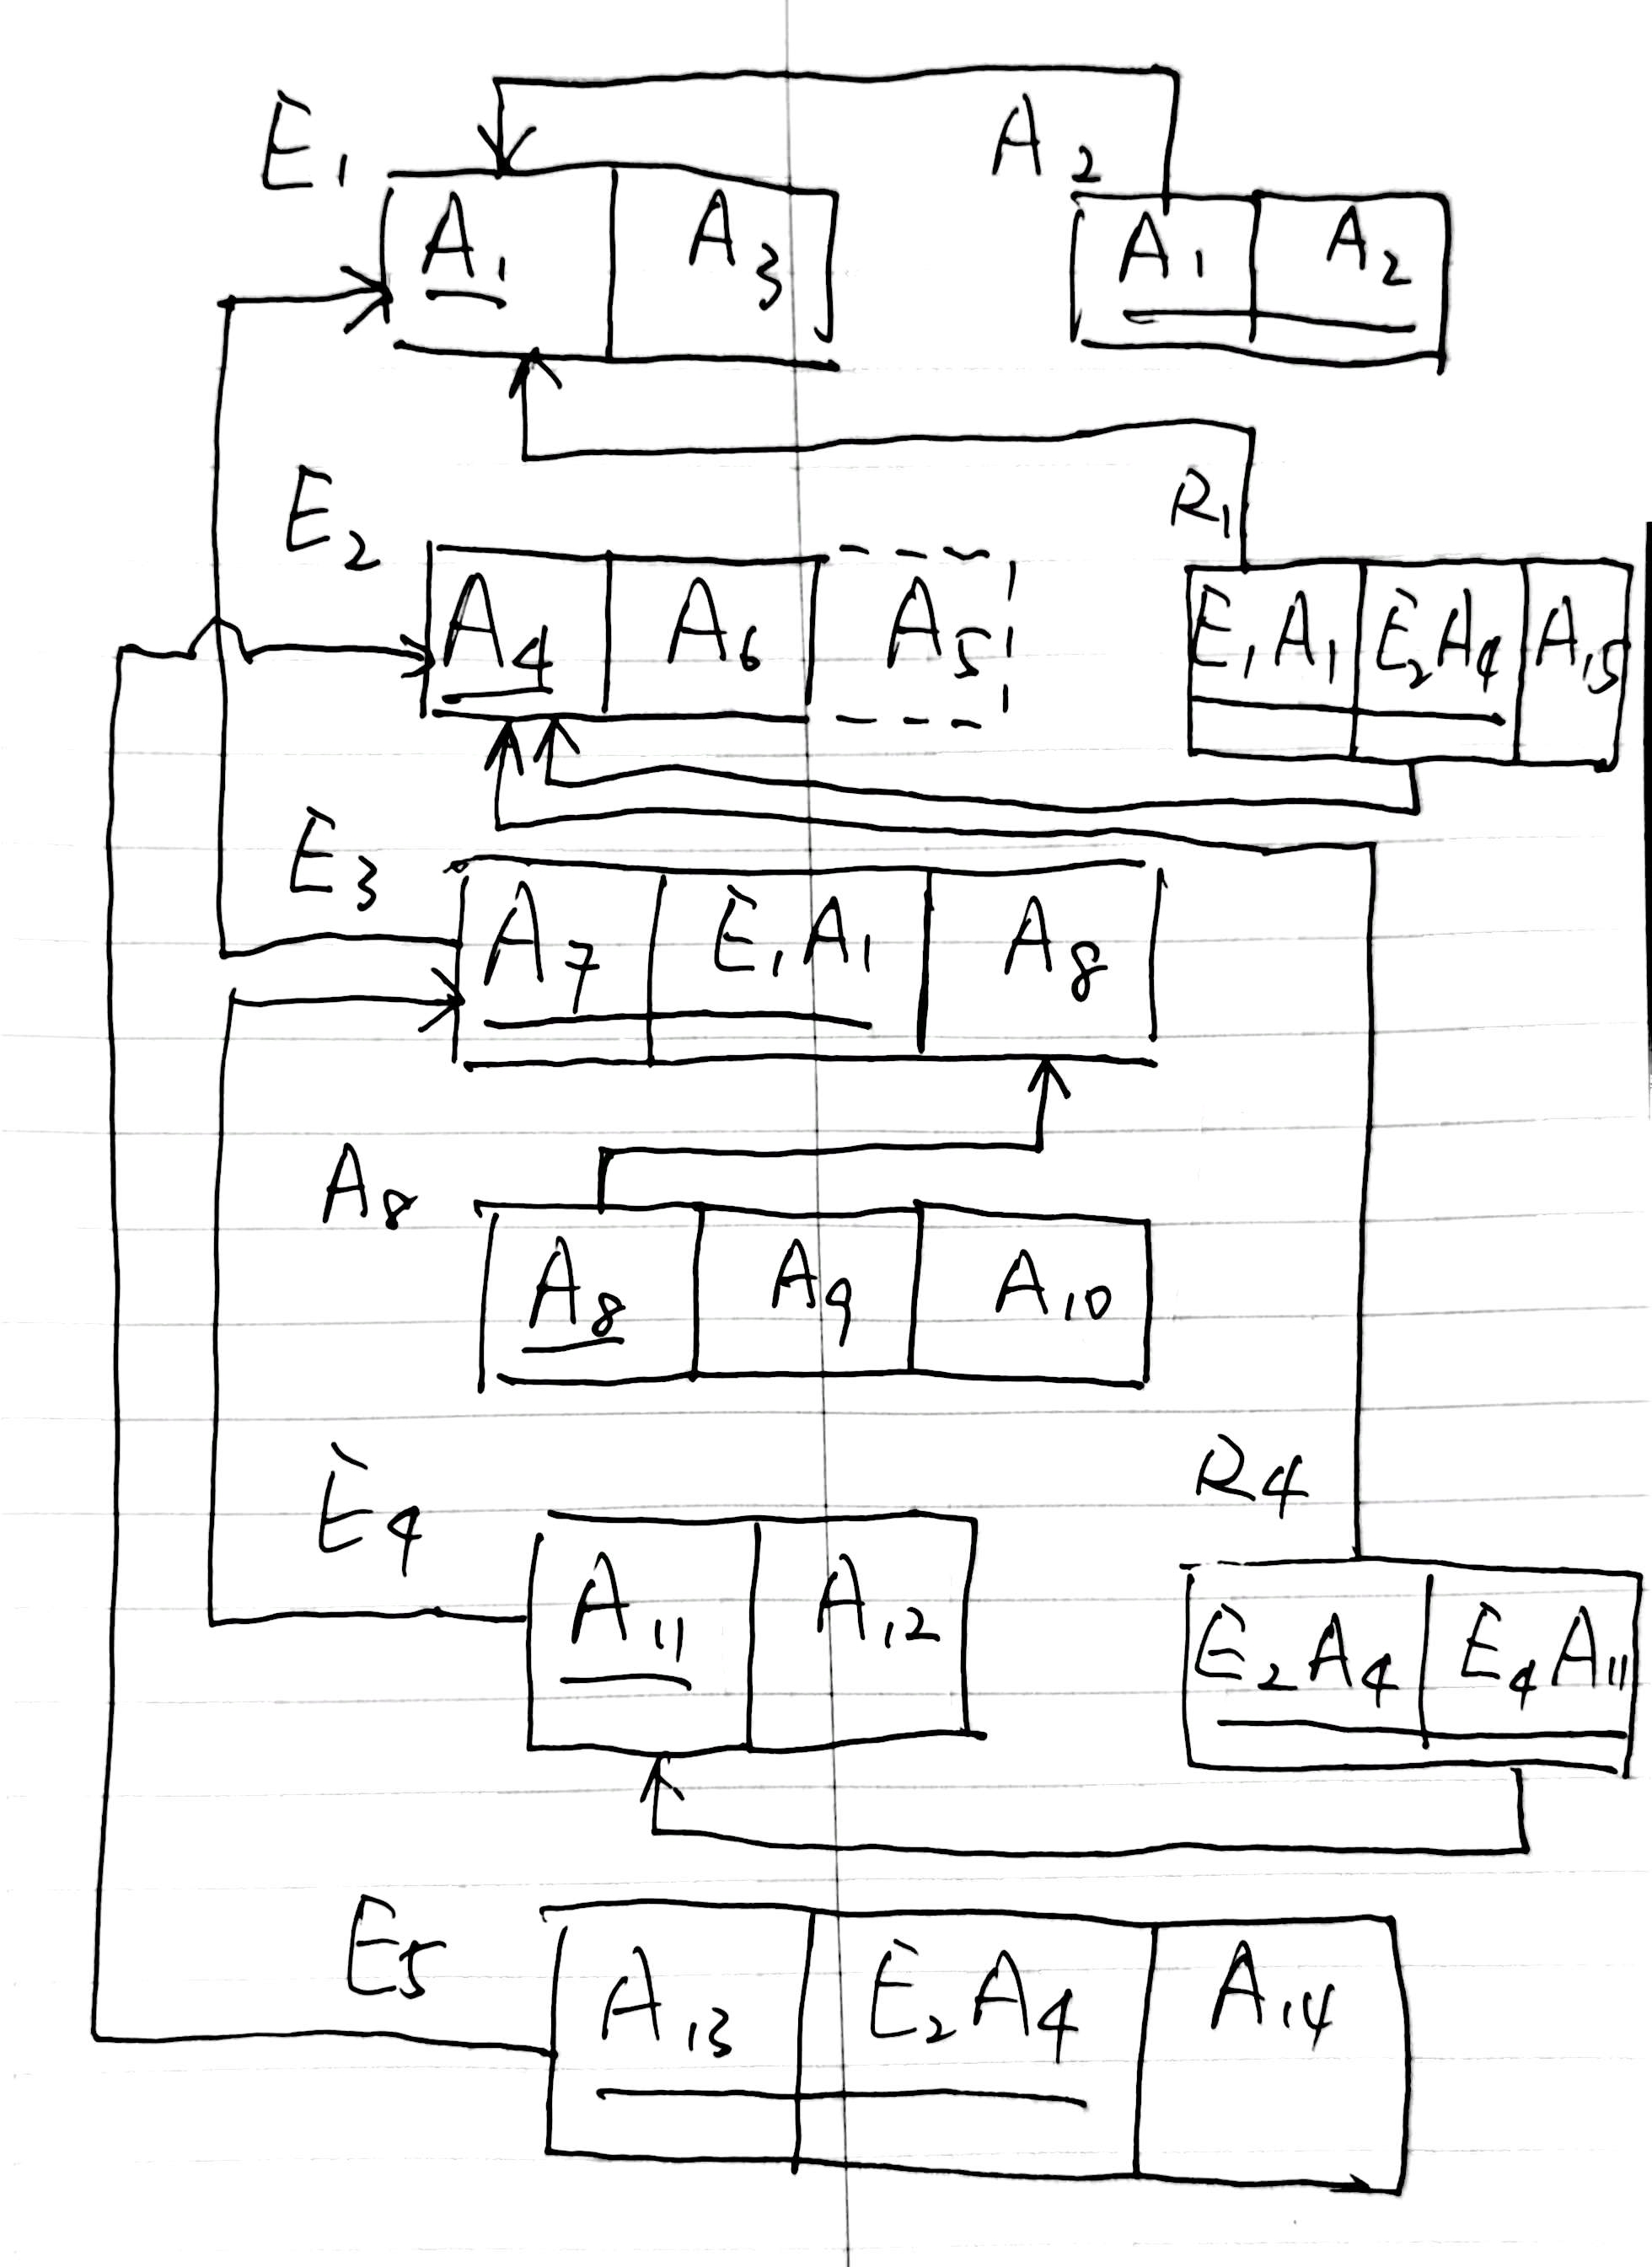 E1
A1 A3
A2
A1 A2
E2
A4 A6 A5
R1
E1A1 E2A4 A15
E3
A7 E1A1 A8
A8
A8 A9 A10
E4
A11 A12
R4
E2A4 E4A11
E5
A13 E2A4 A14